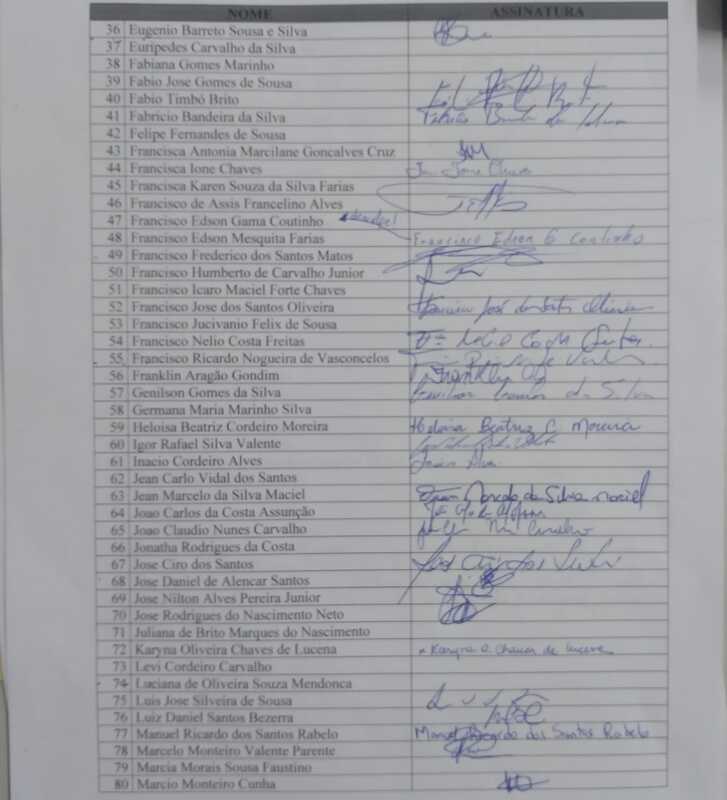 NOME ASSINATURA
36 Eugenio Barreto Sousa e Silva
37 Euripedes Carvalho da Silva
38 Fabiana Gomes Marinho
39 Fabio Jose Gomes de Sousa
40 Fabio Timbó Brito
41 Fabricio Bandeira da Silva
42 Felipe Fernandes de Sousa
43 Francisca Antonia Marcilane Goncalves Cruz
44 Francisca Ione Chaves
45 Francisca Karen Souza da Silva Farias
46 Francisco de Assis Francelino Alves
47 Francisco Edson Gama Coutinho
48 Francisco Edson Mesquita Farias Francisco Edson G Coutinho
49 Francisco Frederico dos Santos Matos
50 Francisco Humberto de Carvalho Junior
51 Francisco Icaro Maciel Forte Chaves
52 Francisco Jose dos Santos Oliveira Francisco José dos Santos Oliveira
53 Francisco Jucivanio Felix de Sousa
54 Francisco Nelio Costa Freitas
55 Francisco Ricardo Nogueira de Vasconcelos
56 Franklin Aragão Gondim
57 Genilson Gomes da Silva da Silva
58 Germana Maria Marinho Silva
59 Heloisa Beatriz Cordeiro Moreira Heloisa Beatriz C. Moreira
60 Igor Rafael Silva Valente
61 Inacio Cordeiro Alves
62 Jean Carlo Vidal dos Santos
63 Jean Marcelo da Silva Maciel Jean Marcelo da Silva Maciel
64 Joao Carlos da Costa Assunção
65 Joao Claudio Nunes Carvalho Carvalho
66 Jonatha Rodrigues da Costa
67 Jose Ciro dos Santos José Ciro dos Santos
68 Jose Daniel de Alencar Santos
69 Jose Nilton Alves Pereira Junior
70 Jose Rodrigues do Nascimento Neto
71 Juliana de Brito Marques do Nascimento
72 Karyna Oliveira Chaves de Lucena Karyna O. Chaves de Lucena
73 Levi Cordeiro Carvalho
74 Luciana de Oliveira Souza Mendonca
75 Luis Jose Silveira de Sousa
76 Luiz Daniel Santos Bezerra
77 Manuel Ricardo dos Santos Rabelo Manuel Ricardo dos Santos Rabelo
78 Marcelo Monteiro Valente Parente
79 Marcia Morais Sousa Faustino
80 Marcio Monteiro Cunha